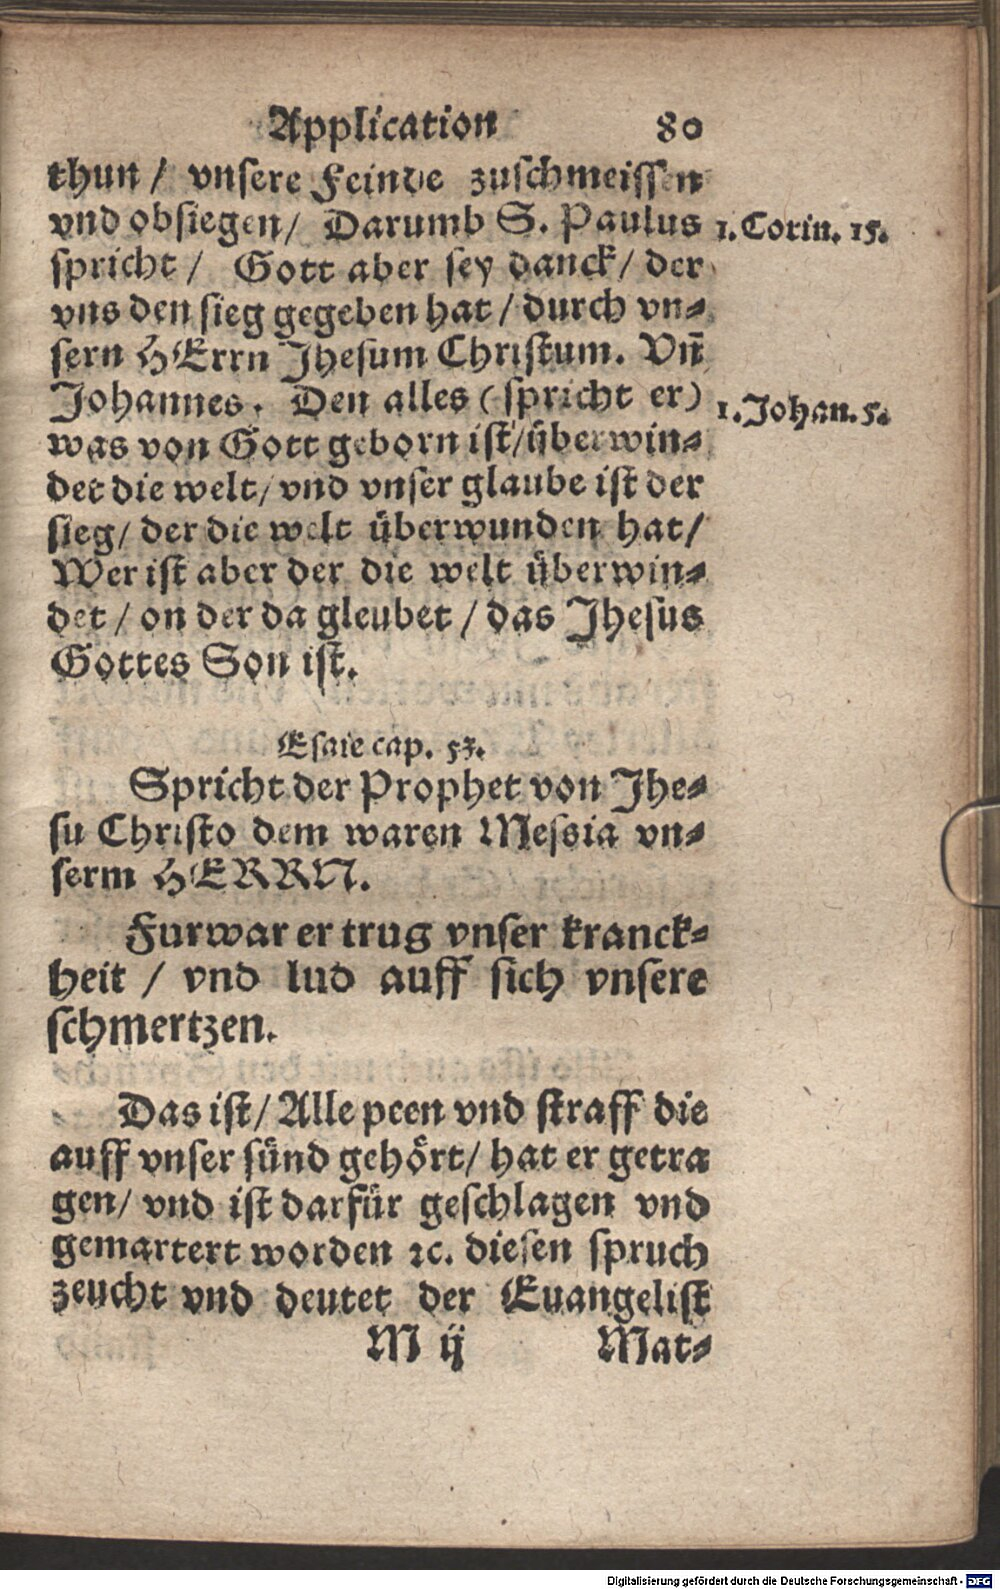 Application 80
thun / vnsere Feinde zuschmeissen
vnd obsiegen / Darumb S. Paulus
1. Corin. 15.
spricht / Gott aber sey danck / der
vns den sieg gegeben hat / durch vn⸗
sern HErrn Jhesum Christum. Vn̄
Johannes. Den alles (spricht er)
1. Johan. 5.
was von Gott geborn ist / überwin⸗
det die welt / vnd vnser glaube ist der
sieg / der die welt überwunden hat /
Wer ist aber der die welt überwin⸗
det / on der da gleubet / das Jhesus
Gottes Son ist.
Esaie cap. 53.
Spricht der Prophet von Jhe⸗
su Christo dem waren Messia vn⸗
serm HERRN.
Furwar er trug vnser kranck⸗
heit / vnd lud auff sich vnsere
schmertzen.
Das ist / Alle peen vnd straff die
auff vnser sünd gehört / hat er getra
gen / vnd ist darfür geschlagen vnd
gemartert worden ꝛc. diesen spruch
zeucht vnd deutet der Euangelist
M ij Mat⸗
Digitalisierung gefördert durch die Deutsche Forschungsgemeinschaft - DFG